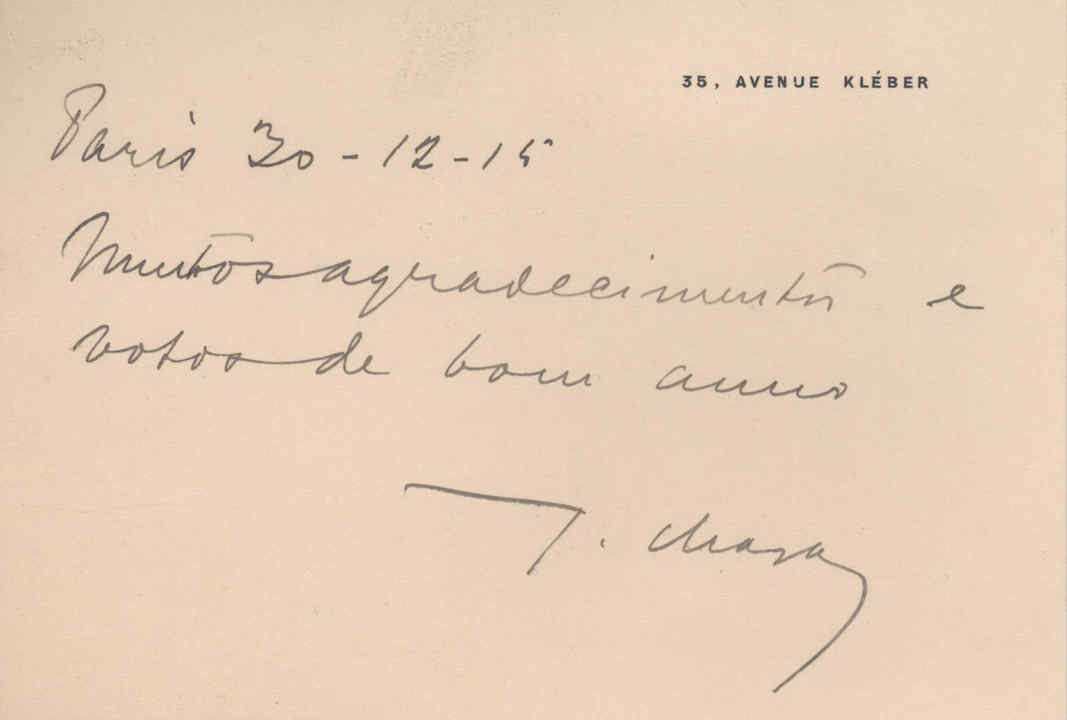 35, AVENUE KLÉBER
Paris 30-12-15
Muitos agradecimentos e
votos de bom anno
J. Chagas